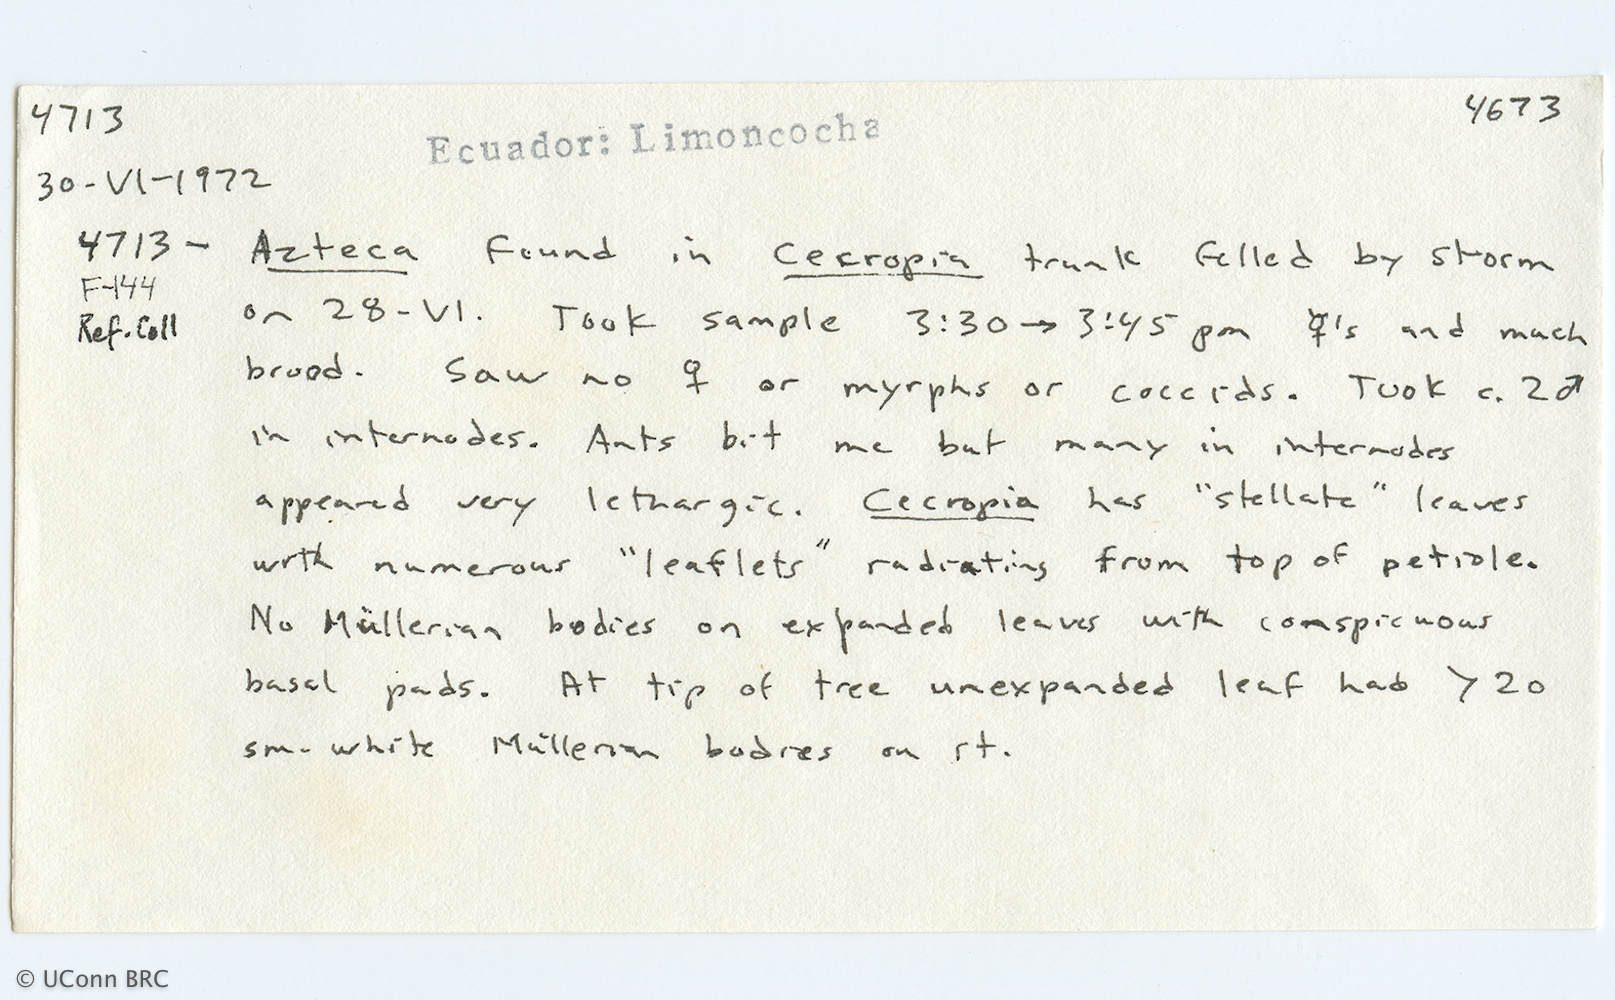 4713
4673
Ecuador: Limoncocha
30-VI-1972
4713 - Azteca found in Cecropia trunk felled by storm
F-144
on 28-VI. Took sample 3:30 → 3:45 pm ☿'s and much
Ref. Coll
brood. Saw no ♀ or myrphs or coccids. Took c. 2♂
in internodes. Ants bit me but many in internodes
appeared very lethargic. Cecropia has "stellate" leaves
with numerous "leaflets" radiating from top of petiole.
No Müllerian bodies on expanded leaves with conspicuous
basal pads. At tip of tree unexpanded leaf had > 20
sm. white Müllerian bodies on it.
© UConn BRC